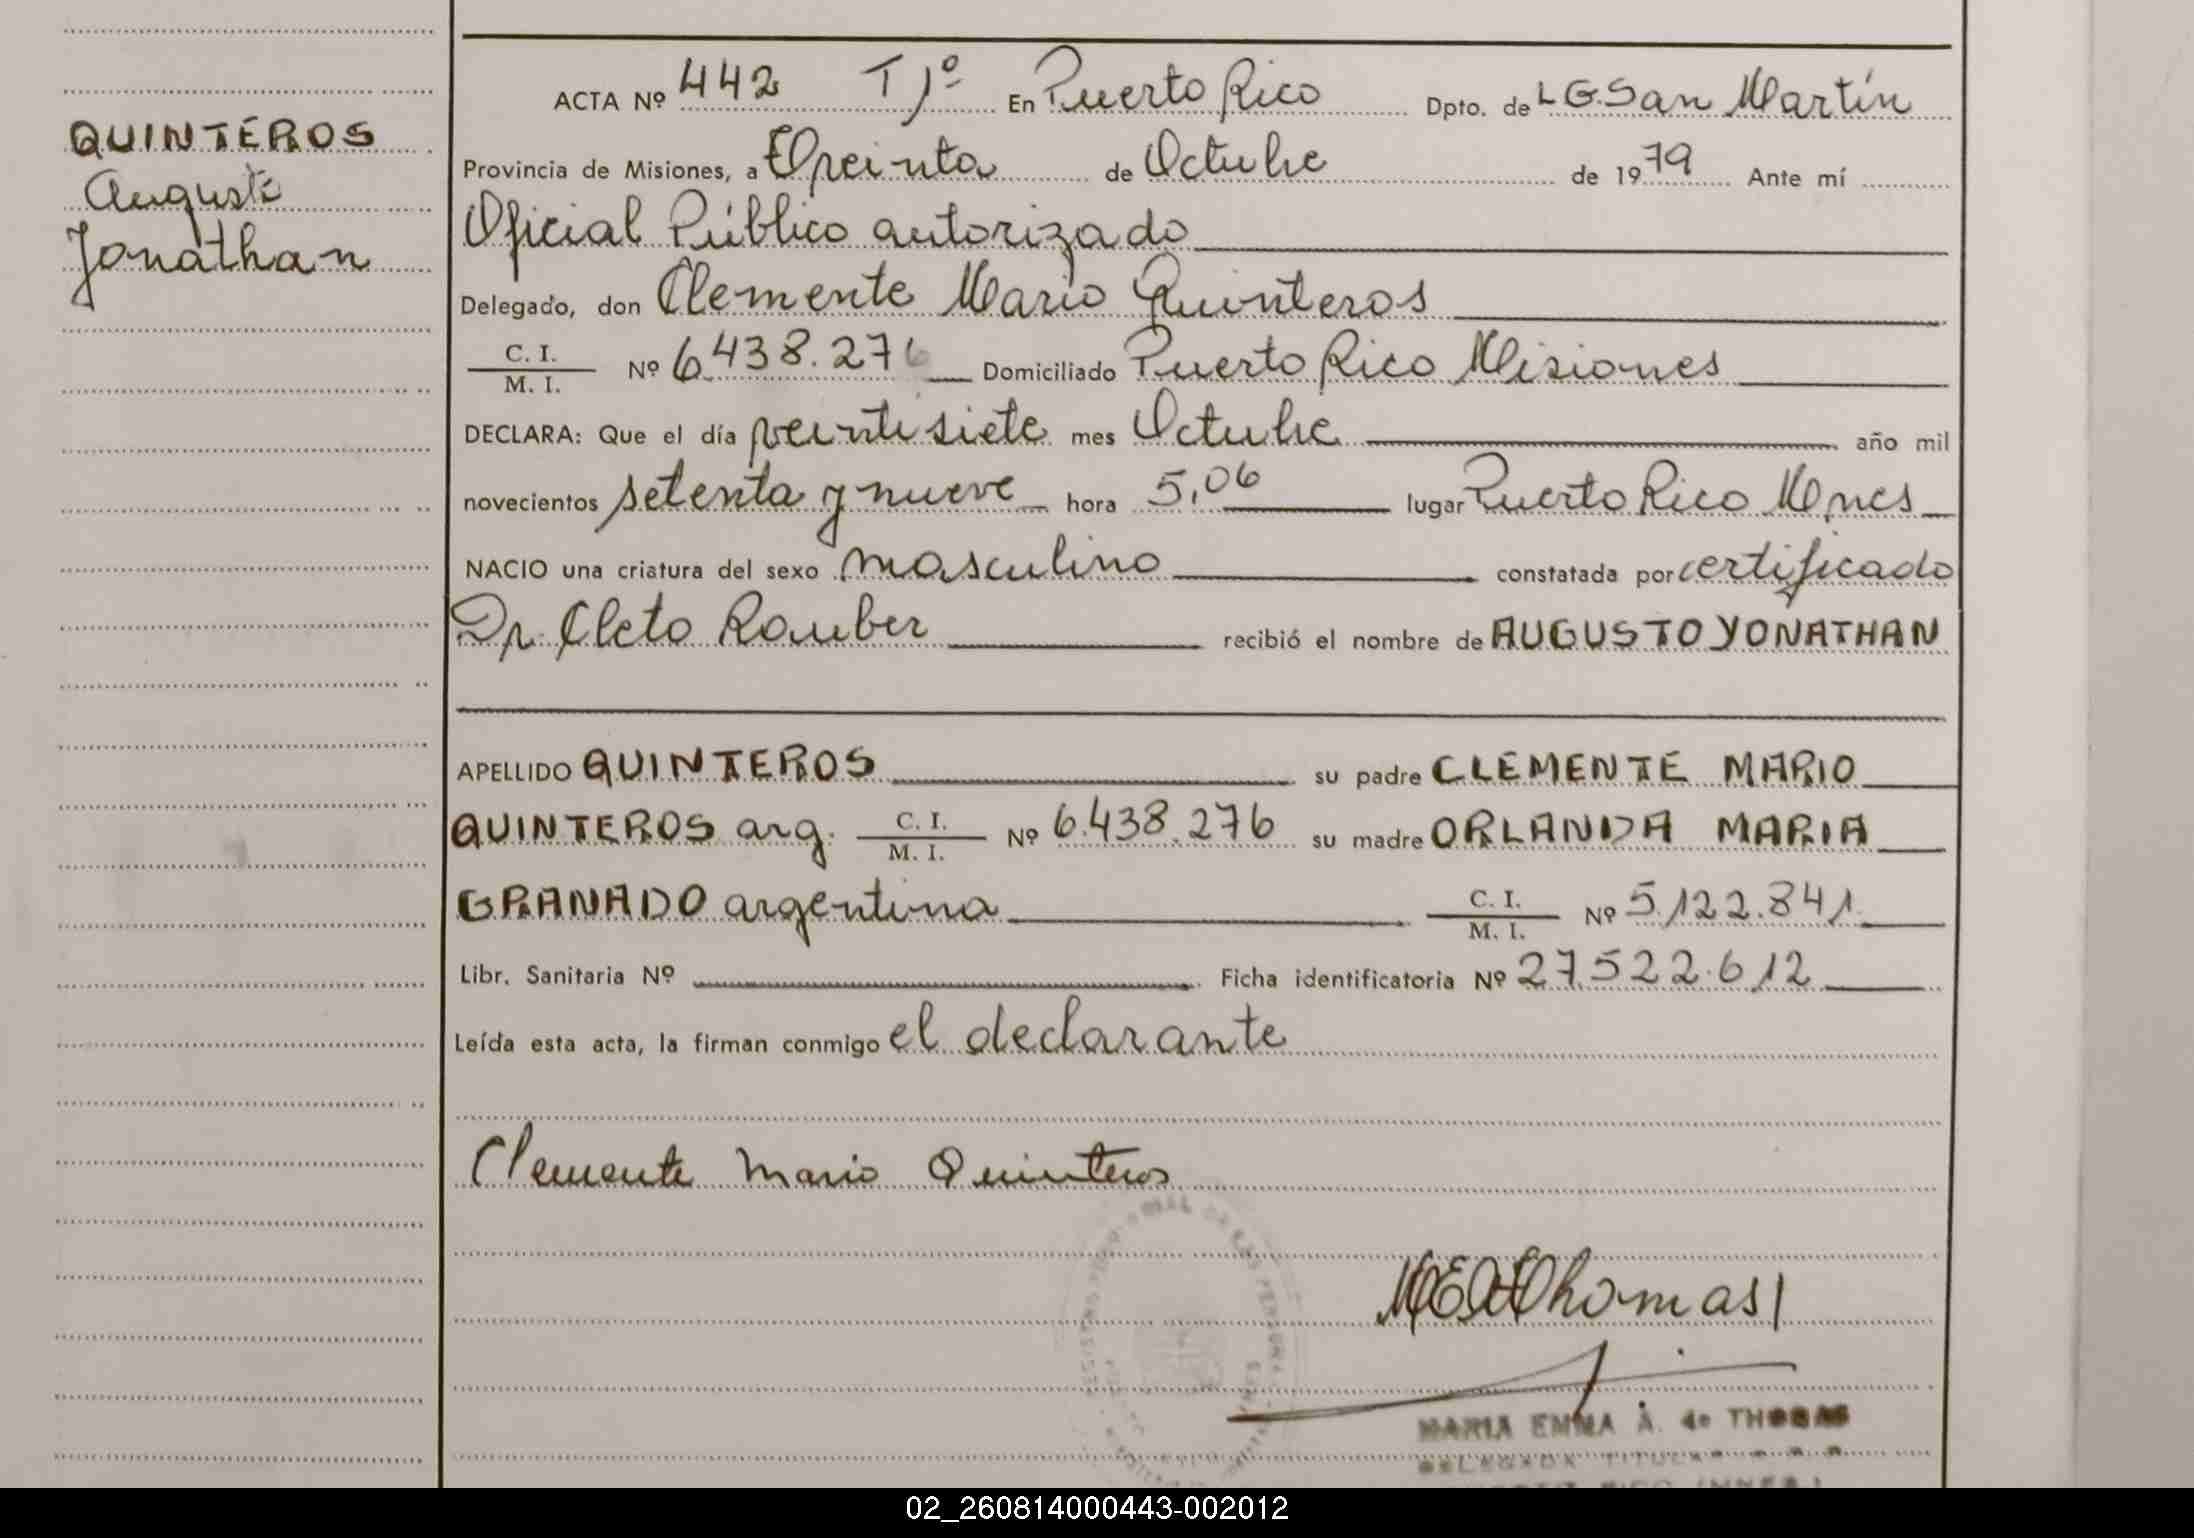 QUINTEROS
Augusto
Jonathan
ACTA Nº 442 T 1º En Puerto Rico Dpto. de L G. San Martín
Provincia de Misiones, a Treinta de Octubre de 1979 Ante mí
Oficial Público autorizado
Delegado, don Clemente Mario Quinteros
C. I. / M. I. Nº 6.438.276 Domiciliado Puerto Rico Misiones
DECLARA: Que el día veintisiete mes Octubre año mil
novecientos setenta y nueve hora 5,06 lugar Puerto Rico Mnes
NACIO una criatura del sexo masculino constatada por certificado
Dr. Cleto Rauber recibió el nombre de AUGUSTO YONATHAN
APELLIDO QUINTEROS su padre CLEMENTE MARIO
QUINTEROS arg. C. I. / M. I. Nº 6.438.276 su madre ORLANDA MARIA
GRANADO argentina C. I. / M. I. Nº 5.122.841
Libr. Sanitaria Nº Ficha identificatoria Nº 27.522.612
Leída esta acta, la firman conmigo el declarante
Clemente Mario Quinteros
Thomas
MARIA EMMA A. de THOMAS
DELEGADA TITULAR
PUERTO RICO (MNES.)
02_260814000443-002012